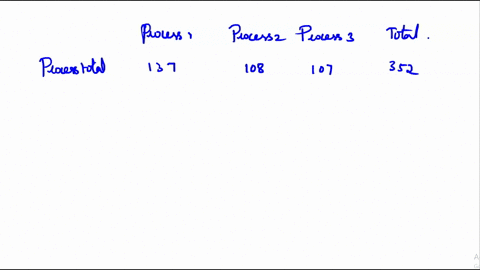 Process 1 Process 2 Process 3 Total.
Process total 137 108 107 352